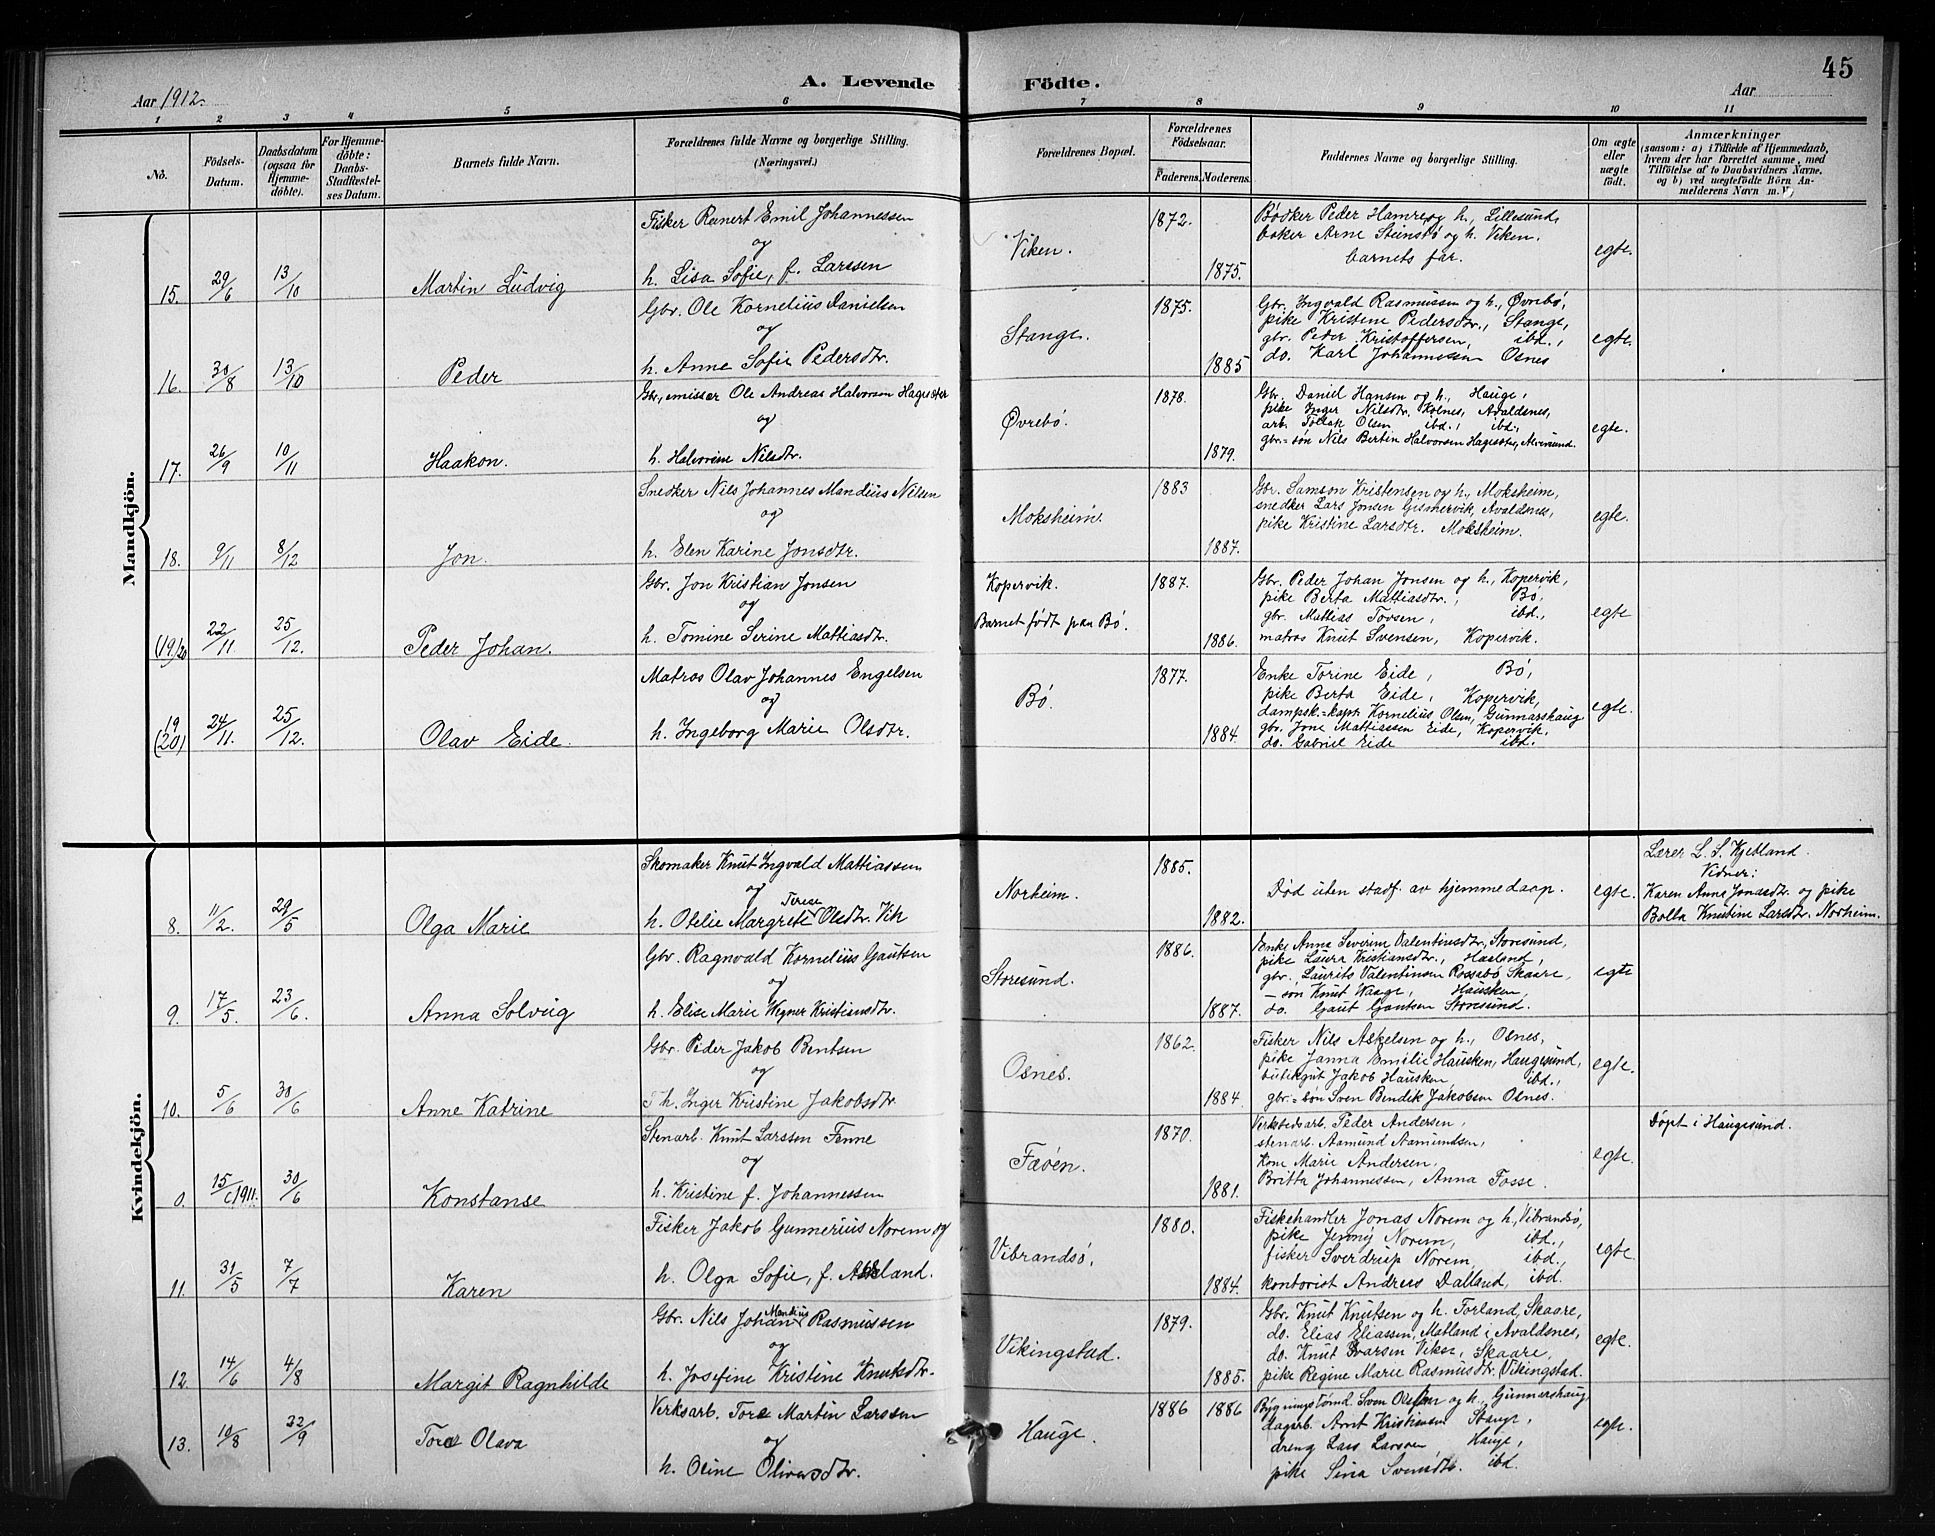 45
A. Levende Födte.
Aar 1912.
Aar
1 2 3 4 5 6 7 8 9 10 11
No.
Födsels-Datum.
Daabsdatum (ogsaa for Hjemmedøbte).
For Hjemmedöbte: Daabs-Stadfæstelses Datum.
Barnets fulde Navn.
Forældrenes fulde Navne og borgerlige Stilling. (Næringsvei.)
Forældrenes Bopæl.
Forældrenes Födselsaar.
Faderens. Moderens.
Faddernes Navne og borgerlige Stilling.
Om ægte eller uægte födt.
Anmærkninger
(saasom: a) i Tilfælde af Hjemmedaab, hvem der har forrettet samme, med Tilföielse af to Daabsvidners Navne, og b) ved uægtefödte Börn Anmelderens Navn m. V.)
Mandkjön.
15. 29/6 13/10 Martin Ludvig
Fisker Reinert Emil Johannessen
og
h. Lisa Sofie, f. Larssen
Viken. 1872. 1875.
Bödker Peder Hamre og h., Lillesund,
baker Arne Steinsbø og h. Viken.
barnets far.
egte.
16. 30/8 13/10 Peder
Gbr. Ole Kornelius Danielsen
og
h. Anne Sofie Pedersdtr.
Stange. 1875. 1885
Gbr. Ingvald Rasmussen og h., Øvrebø,
pike Kristene Pedersdtr., Stange,
gbr. Peder Kristoffersen, ibd.,
do. Karl Johannessen Osnes
egte.
17. 26/9 10/11 Haakon.
Gbr., emissær Ole Andreas Halvorsen
og
h. Halvorine Nilsdtr.
Øvrebø. 1878. 1879.
Gbr. Daniel Hansen og h., Hauge,
pike Inger Nilsdtr. Kolnes, Avaldsnes,
arb. Tollak Olsen ibd., ibd.,
gbr.=søn Nils Bertin Halvorsen
egte.
18. 9/11 8/12 Jon.
Snedker Nils Johannes Mandius Nilsen
og
h. Elen Karine Jonsdtr.
Moksheim. 1883 1887.
Gbr. Samson Kristensen og h., Moksheim,
snedker Lars Jonsen Gismervik, Avaldsnes,
pike Kristine Larsdtr. Moksheim.
egte.
(19)/20 22/11. 25/12. Peder Johan.
Gbr. Jon Kristian Jonsen
og
h. Tomine Serine Mattiasdtr.
Kopervik.
Barnet født paa Bø.
1887. 1886.
Gbr. Peder Johan Jonsen og h., Kopervik,
pike Berta Mattiasdtr., Bø,
gbr. Mattias Tovsen, ibd.,
matros Knut Svensen, Kopervik.
egte
19 (20) 24/11. 25/12. Olav Eide.
Matros Olav Johannes Engelsen
og
h. Ingeborg Marie Olsdtr.
Bø. 1877. 1884.
Enke Torine Eide, Bø,
pike Berta Eide, Kopervik,
dampsk.=kapt. Kornelius Olsen, Gunnarshaug
gbr. Jone Mattiassen Eide, Kopervik,
do. Gabriel Eide ibd.
egte.
Kvindekjön.
8. 11/2. 29/5 Olga Marie
Skomaker Knut Ingvald Mattiassen
og
h. Otelie Margrete Terese Olsdtr. Vik
Norheim. 1885. 1882.
Død uten stadf. av hjemmedaap.
egte.
Lærer L. S. Kjebland.
Vidner:
Karen Anna Jonasdtr. og pike
Bolla Knutine Larsdtr. Norheim.
9. 17/5. 23/6. Anna Solvug
Gbr. Ragnvald Kornelius Gautsen
og
h. Elise Marie Wegner Kristiansdtr.
Storesund. 1886. 1887.
Enke Anna Severine Valentinsdtr., Storesund,
pike Laura Kristiansdtr., Haaland,
gbr. Laurits Valentinsen Rossabø Skaare,
– søn Knut Waage, Hausken,
do. Gaut Gautsen Storesund.
egte
10. 5/6 30/6 Anne Katrine
Gbr. Peder Jakob Bentsen
og
h. Inger Kristine Jakobsdtr
Osnes. 1862. 1884.
Fisker Nils Askelsen og h., Osnes,
pike Janna Emilie Hausken, Haugesund,
Jakob Hausken, ibd.,
gbr.=søn Sven Bendik Jakobsen Osnes.
egte.
0. 15/6 1911. 30/6 Konstanse
Stenarb. Knut Larssen Fenne
og
h. Kristine f. Johannessen
Fæøen. 1870. 1881.
Verkstedsarb. Peder Andersen,
stenarb. Aamund Aamundsen,
Kone Marie Andersen.
Britta Johannessen, Anna Fosse.
egte.
Døpt i Haugesund.
11. 31/5 7/7 Karen
Fisker Jakob Gunnerius Norem og
h. Olga Sofie, f.
Vibrandsø. 1880. 1884.
Fiskehandler Jonas Norem og h., Vibrandsø,
pike Jenny Norem, ibd.,
fisker Sverdrup Norem, ibd.,
kontorist Andreas Dalland, ibd.
egte.
12. 14/6 4/8 Margit Ragnhilde
Gbr. Nils Johan Mandius Rasmussen
og
h. Josefine Kristine Knutsdtr.
Vikingstad. 1879. 1885.
Gbr. Knut Knutsen og h. Torland, Skaare,
do. Elias Eliassen, Matland i Avaldsnes,
do. Knut Ivarsen Viken, Skaare,
pike Regine Marie Rasmusdtr. Vikingstad.
egte.
13. 10/8 22/9 Tora Olava
Verksarb. Tore Martin Larssen
og
h. Oline Oliversdtr.
Hauge. 1886 1886
Sven Olsen og h., Gunnershaug,
dagarb. Arnt Kristiansen Stange,
dreng Lars Larsen, Hauge,
pike Sina Svensdtr. ibd.
egte.